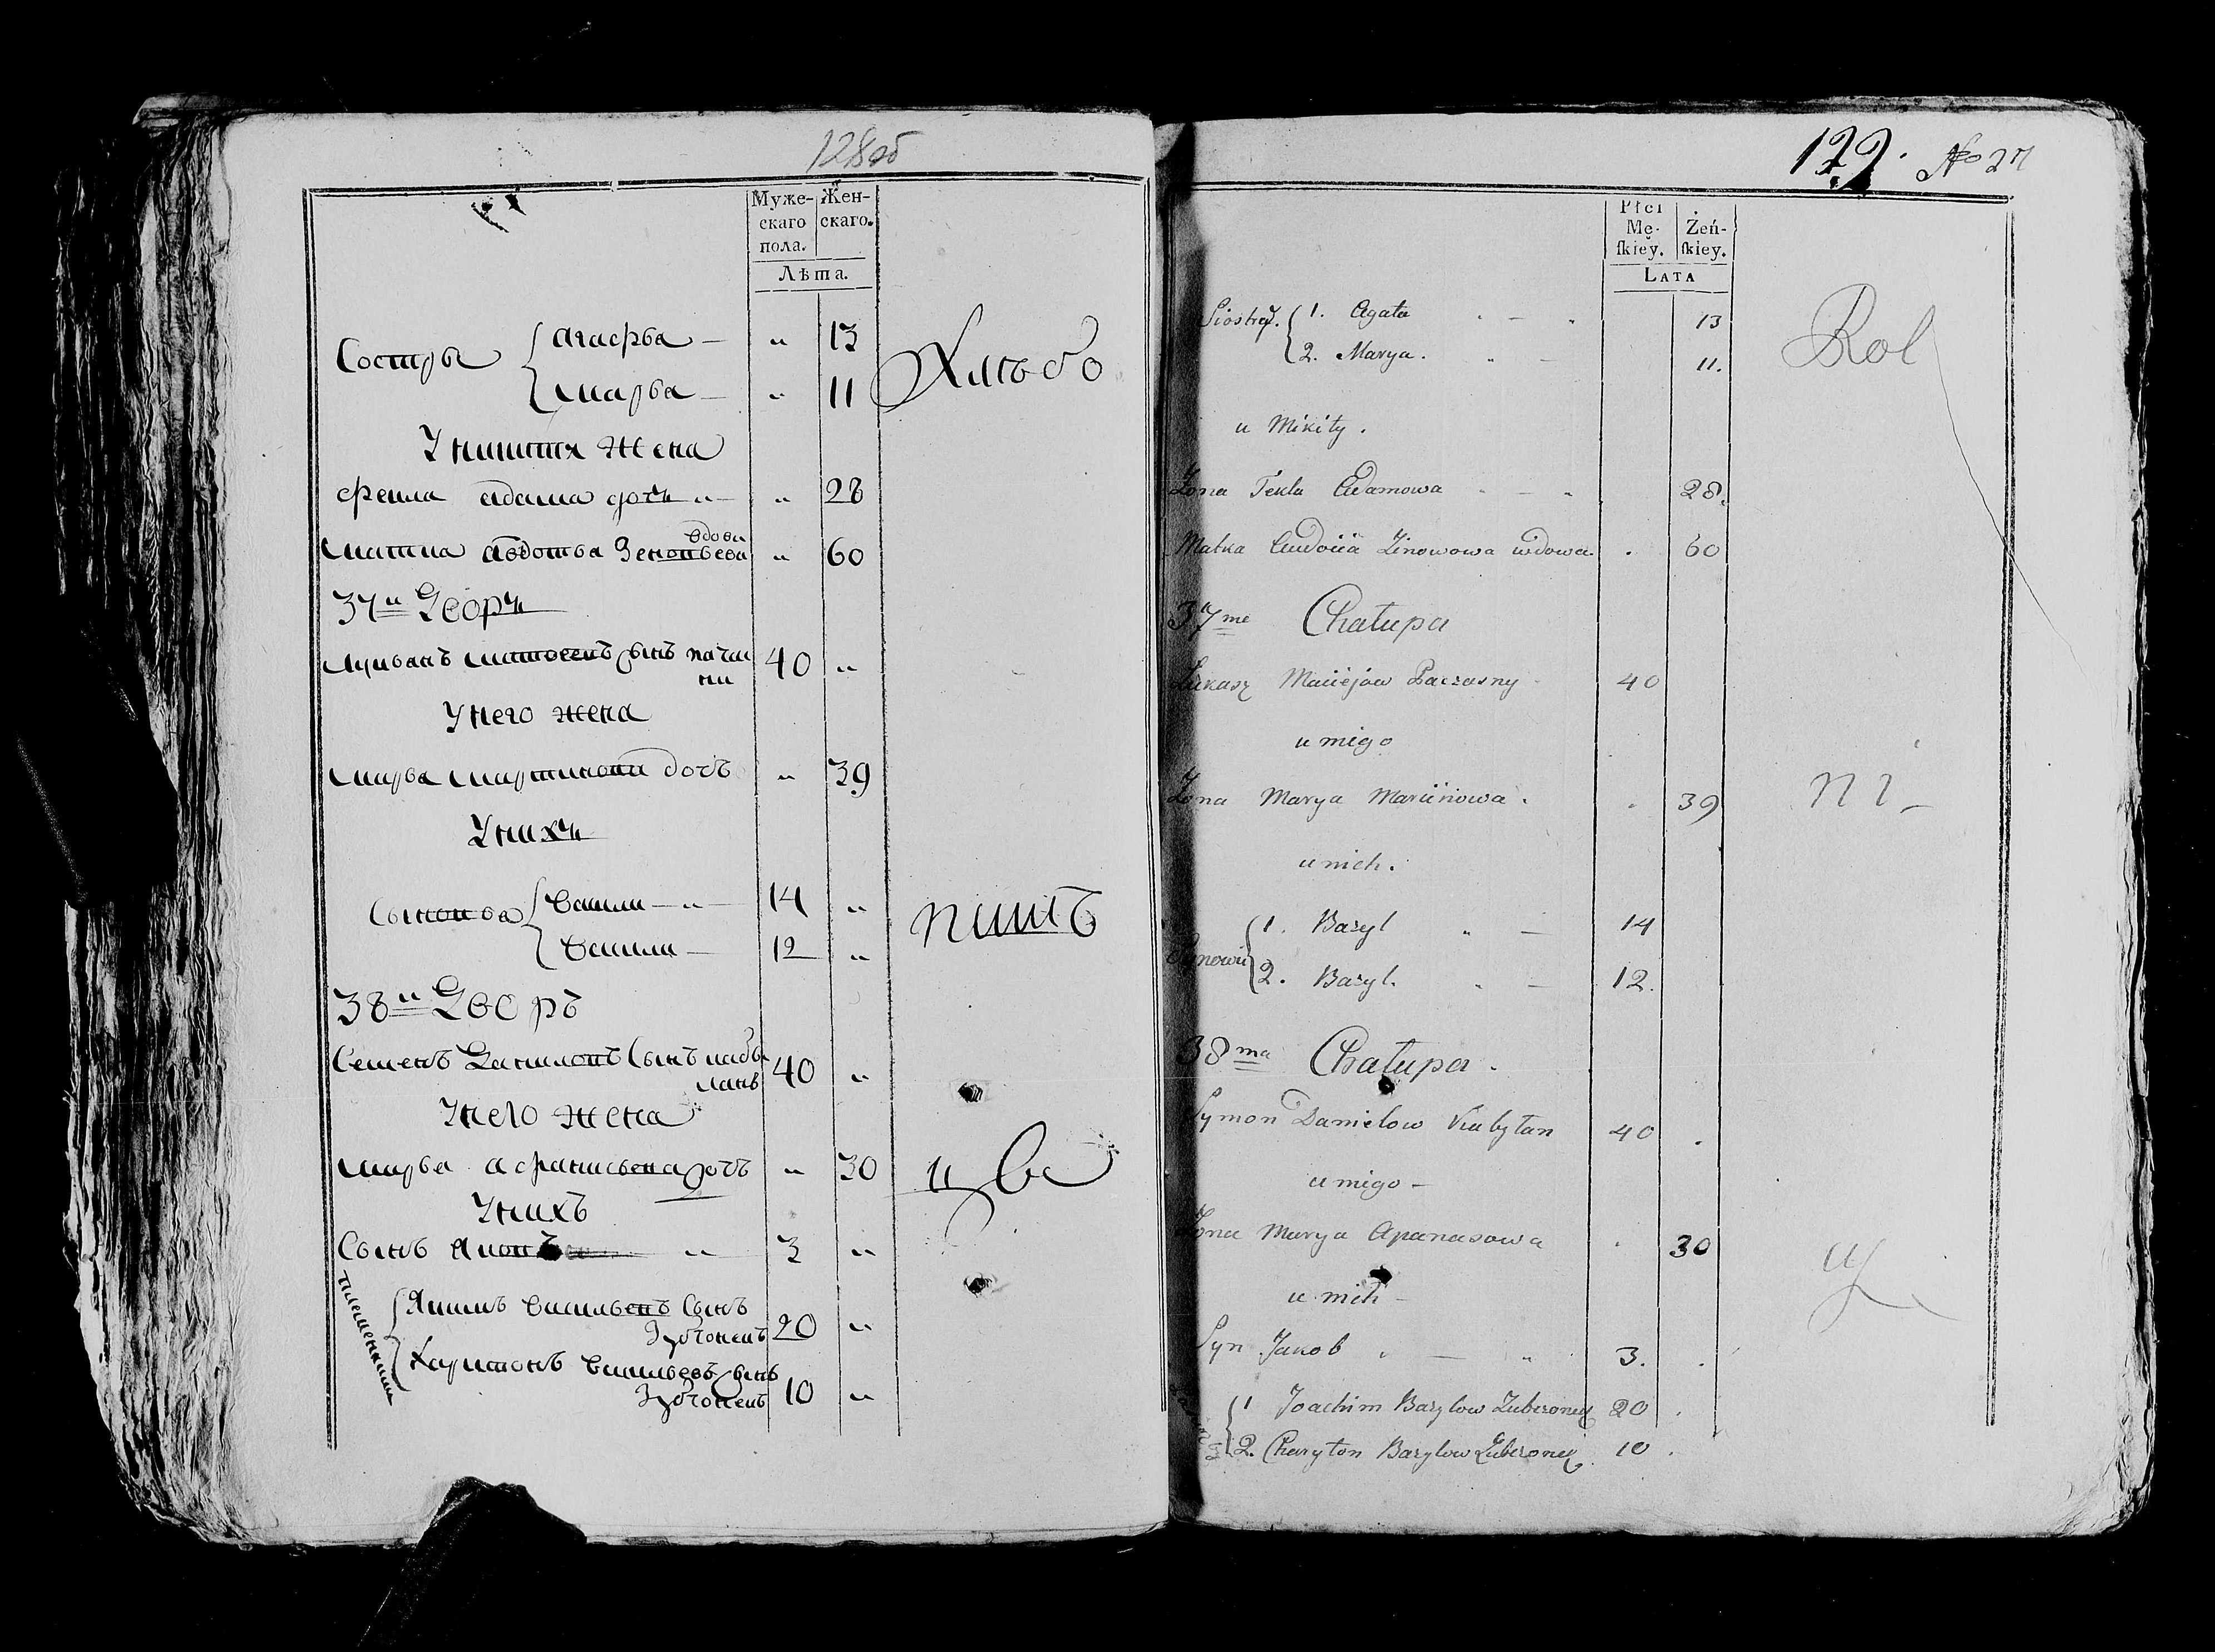 128об
Муже-
скаго
пола.
Жен-
скаго.
Лѣта.
Сестры
Агафья — „ 13
Марья — „ 11
Хлѣбо
У Никиты жена
Фекла Адама дочь „ — „ 28
Матка Авдотья Зеновьева вдова „ 60
37й Дворъ
Лукьянъ Матвеевъ сынъ 40 „
У него жена
Марья Мартинова дочь „ 39
У нихъ
Сыновья
Васили — „ — 14 „
Васили — 12 „
пашъ
38й Дворъ
Семенъ Даниловъ Сынъ 40 „
У него жена
Марья Афанасьева дочь „ 30
цы
У нихъ
Сынъ Яковъ „ 3 „
племенники
Якимъ Васильевъ Сынъ
Зубчонецъ 20 „
Харитонъ Васильевъ сынъ
Зубчонецъ 10 „
129. No 27
Płci
Mę-
ſkiey.
Żeń-
ſkiey.
LATA
Siostry.
1. Agata 13
2. Marya. 11.
Rol
u Mikity.
Żona Tekla Adamowa 28.
Matka Audocia Zinowowa wdowa. 60
37me Chałupa
Łukasz Maciejow Paczasny 40
u niego
Żona Marya Marcinowa. 39
ni-
u nich.
Synowie
1. Bazyl 14
2. Bazyl. 12.
38ma Chałupa.
Symon Daniełow Kubyłan 40
u niego —
Żona Marya Apanasowa 30
cy
u nich —
Syn Jakob 3.
1 Joachim Bazylow Zubczonek 20
2. Charyton Bazylow Zubczonek 10